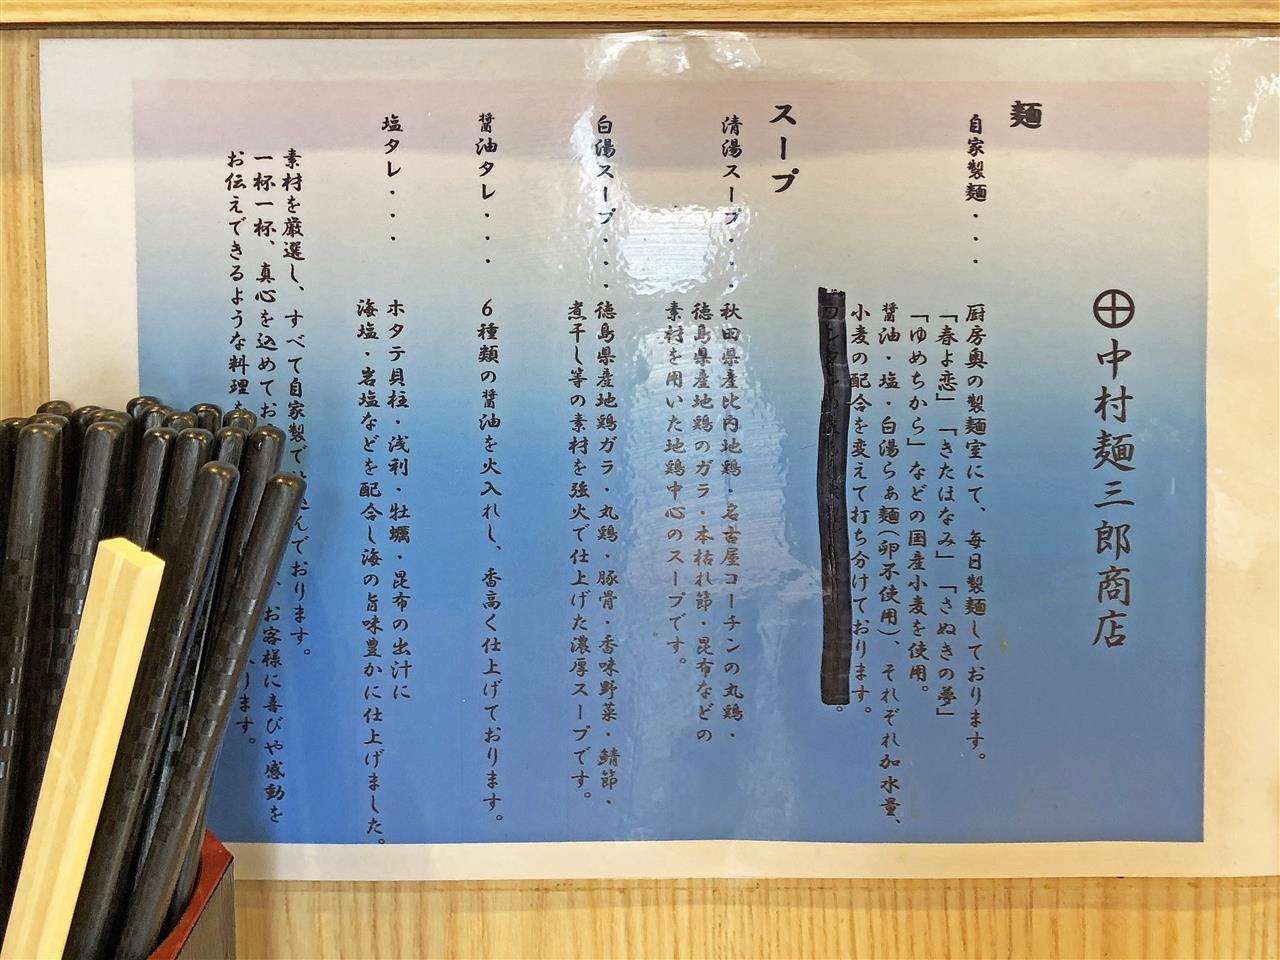 中村麺三郎商店
麺
自家製麺・・・
厨房奥の製麺室にて、毎日製麺しております。
「春よ恋」「きたほなみ」「さぬきの夢」
「ゆめちから」などの国産小麦を使用。
醤油・塩・白湯らぁ麺(卵不使用)、それぞれ加水量、
小麦の配合を変えて打ち分けております。
スープ
清湯スープ・・・
秋田県産比内地鶏・名古屋コーチンの丸鶏・
徳島県産地鶏のガラ・本枯れ節・昆布などの
素材を用いた地鶏中心のスープです。
白湯スープ・・・
徳島県産地鶏ガラ・丸鶏・豚骨・香味野菜・鯖節・
煮干し等の素材を強火で仕上げた濃厚スープです。
醤油タレ・・・
6種類の醤油を火入れし、香高く仕上げております。
塩タレ・・・
ホタテ貝柱・浅利・牡蠣・昆布の出汁に
海塩・岩塩などを配合し海の旨味豊かに仕上げました。
素材を厳選し、すべて自家製で んでおります。
一杯一杯、真心を込めてお 、お客様に喜びや感動を
お伝えできるような料理 ります。